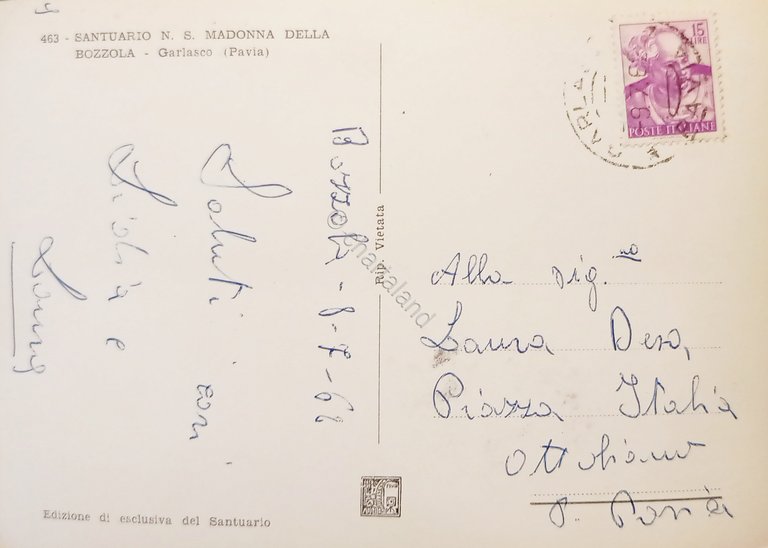 463 - SANTUARIO N. S. MADONNA DELLA
BOZZOLA - Garlasco (Pavia)
Bozzola - 8-7-62
Saluti cari
Lidia e
Rip. Vietata
chartaland
15
LIRE
POSTE ITALIANE
Alla Sig.na
Laura
Piazza Italia
Ottobiano
P. Pavia
Edizione di esclusiva del Santuario